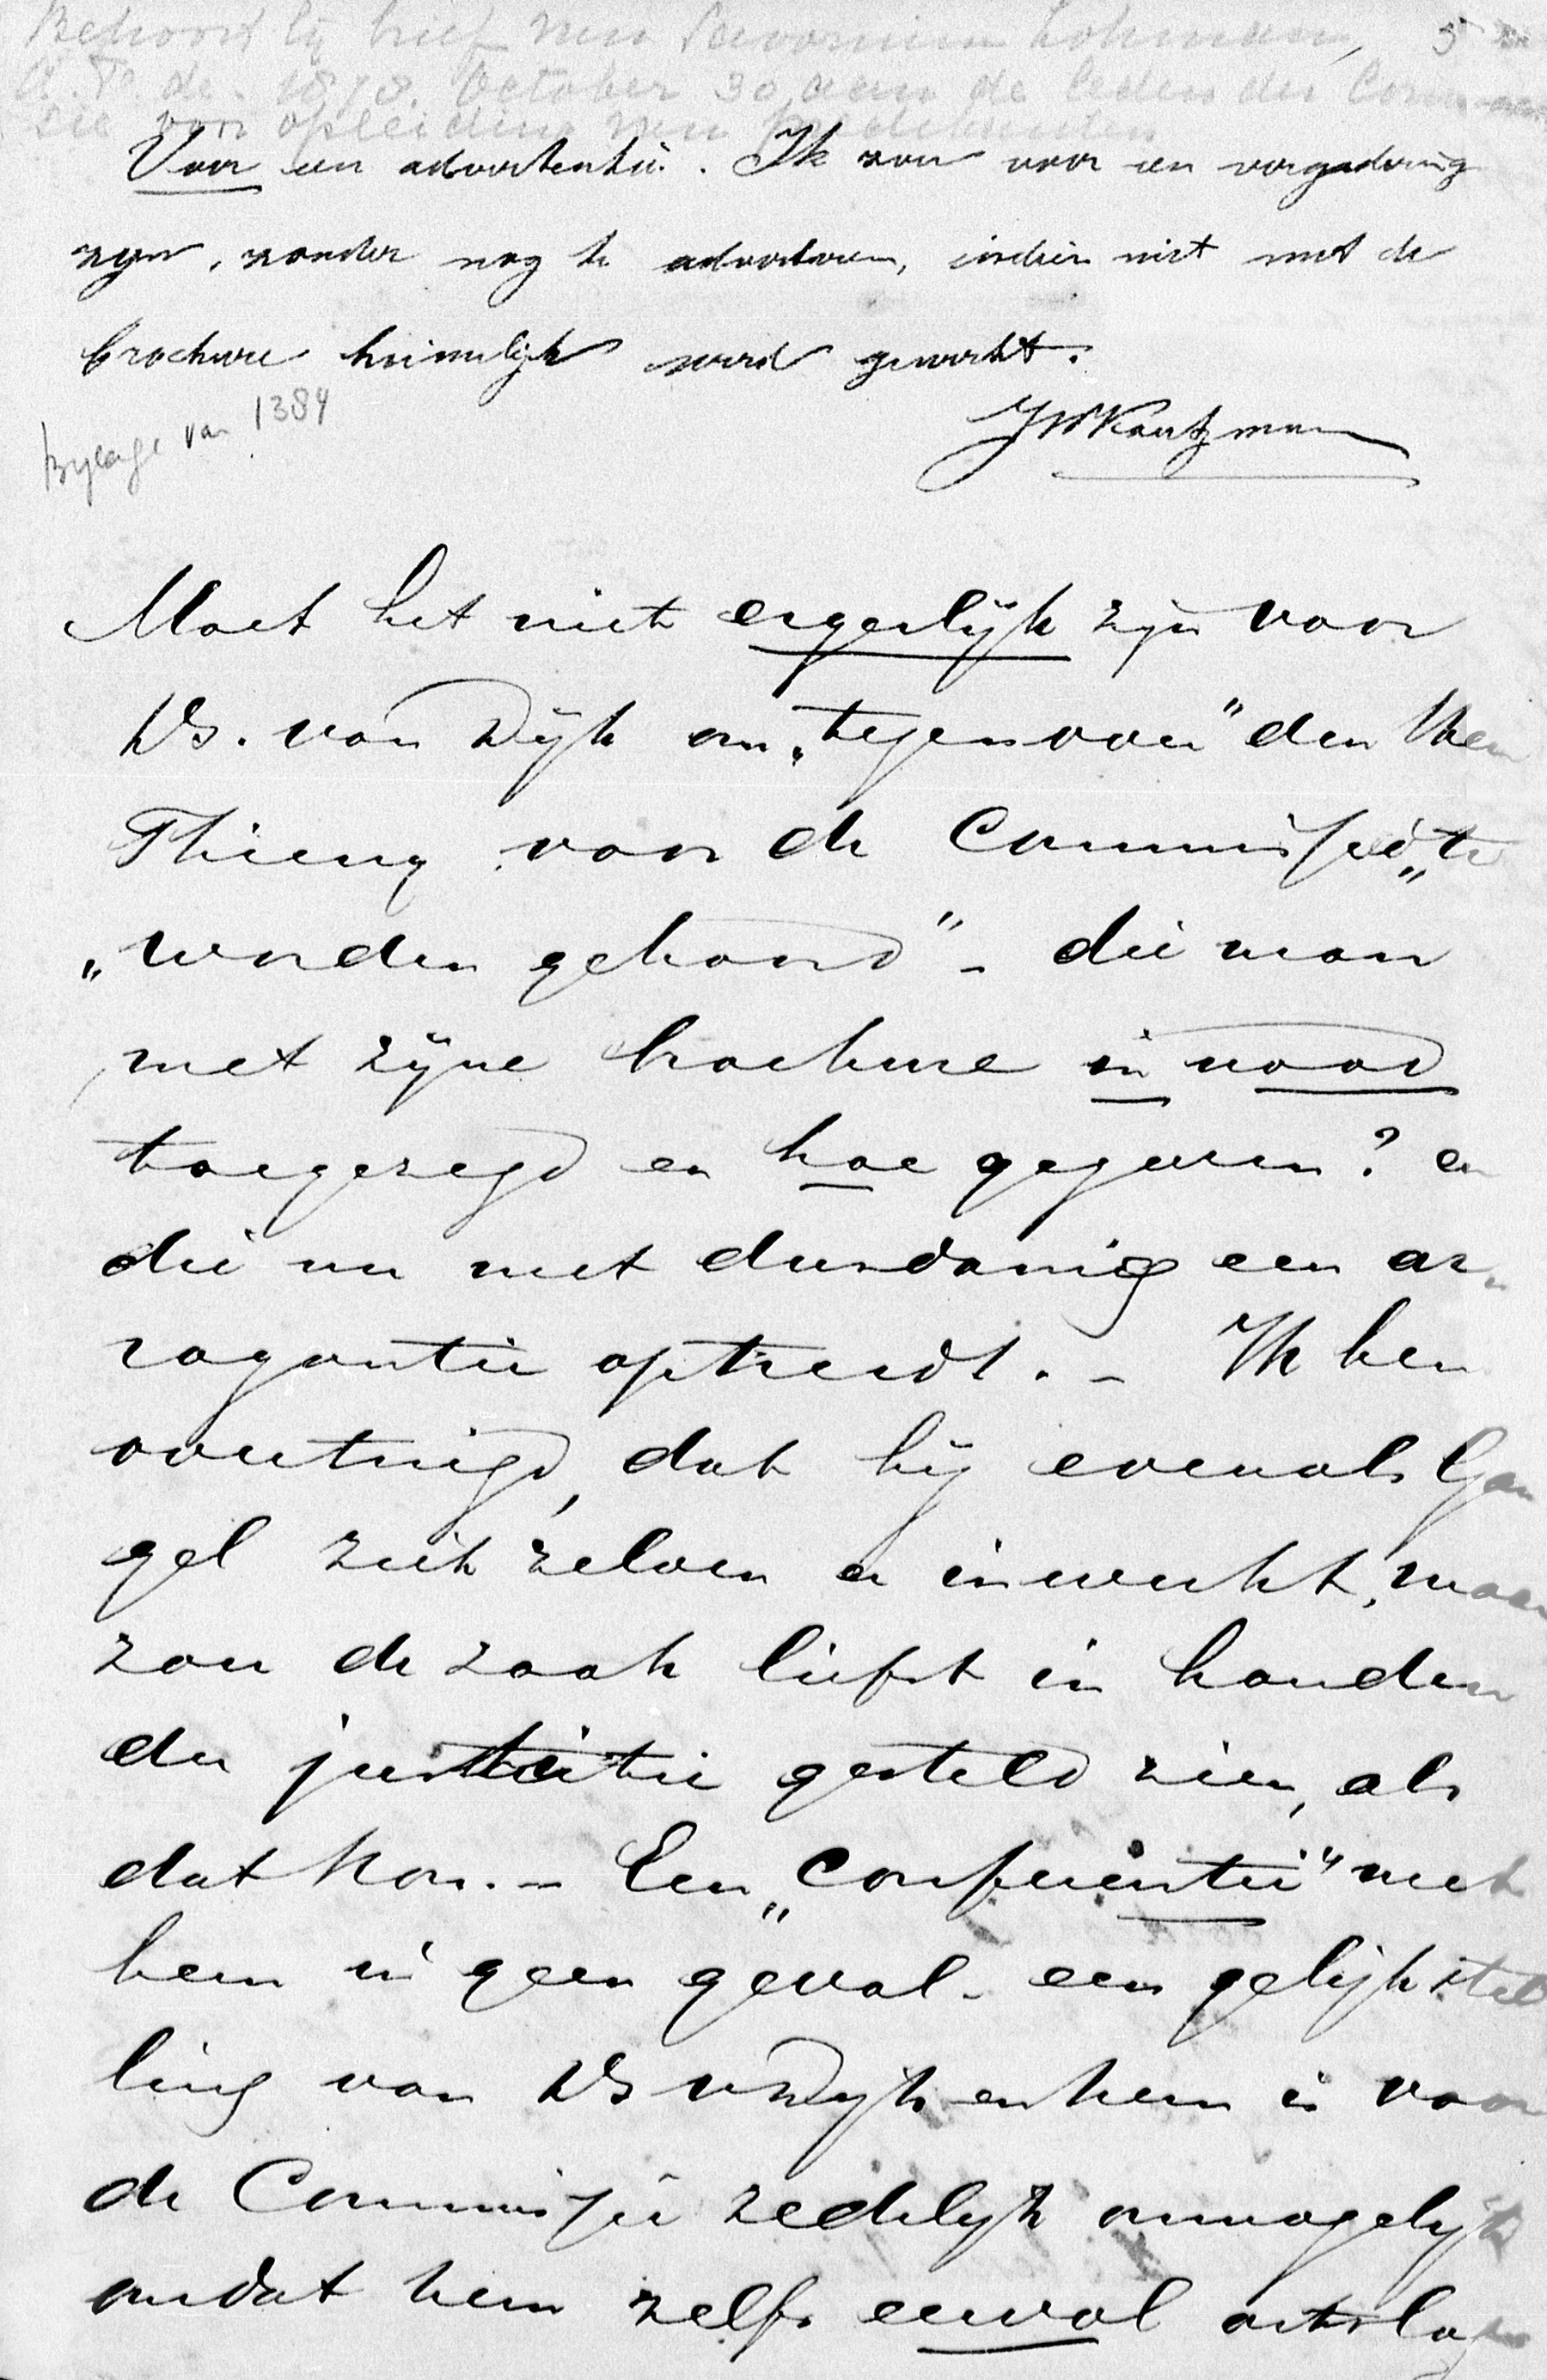 Behoort bij brief van Savornin Lohman, 5
A.F. de. 1878. October 30 aan de leden der Commis-
sie voor opleiding van predikanten
Voor een advertentie. Ik zou voor een vergadering
zyn, zonder nog te adverteren, indien niet met de
brochure heimelijk werd gewerkt.
Bylage van 1384
Moet het niet ergerlijk zijn voor
Ds. van Dijk om „tegenover" den Heer
Thieny voor de Commissie „te
„worden gehoord" - die man
met zijne brochure in nood
toegezegd en hoe gegeven? en
die nu met dusdanig een ar-
rogantie optreedt. - Ik ben
overtuigd, dat hij evenals Gan
gel zich zelven er inwerkt, maar
zou de zaak liefst in handen
der justitie gesteld zien, als
dat kon. - Een „Conferentie" met
hem in geen geval - een gelijkstel
ling van Ds v Dijk en hem is voor
de Commissie zedelijk onmogelijk
omdat hem zelfs eervol ontslag